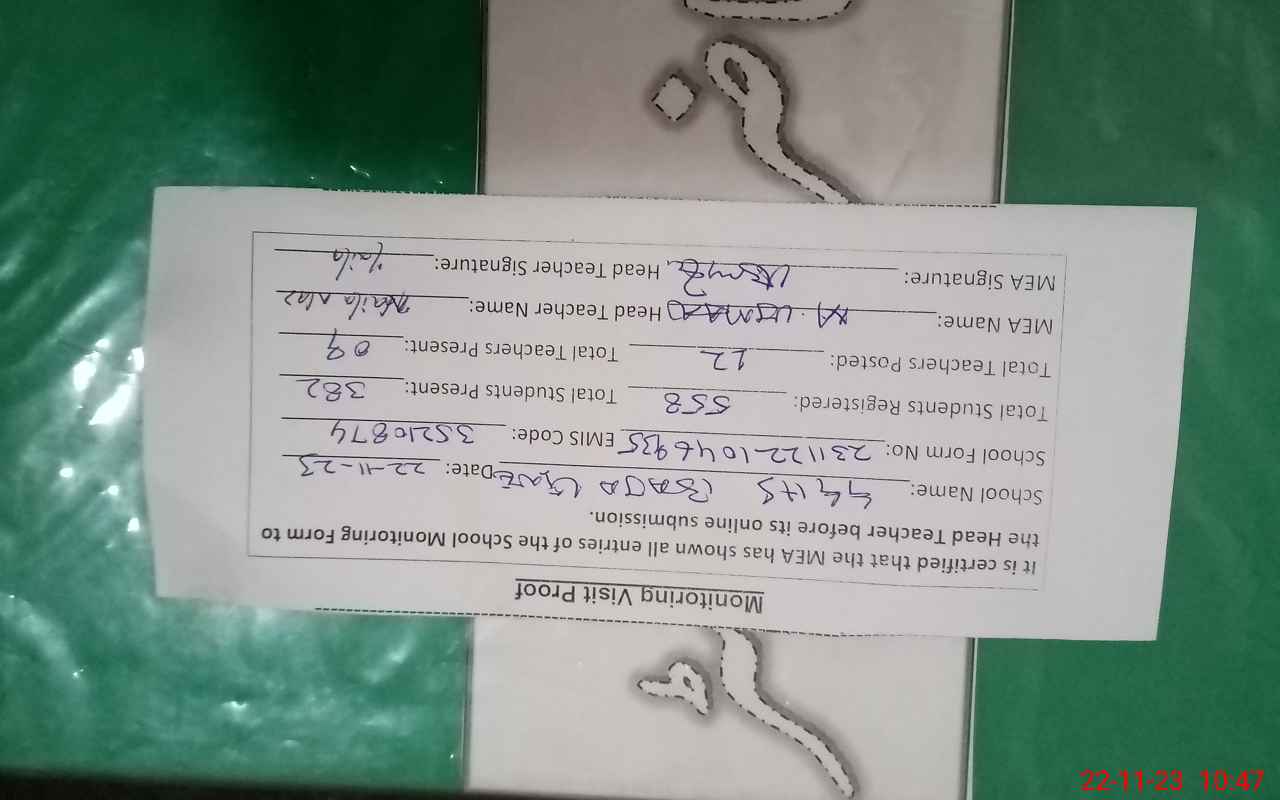 Monitoring Visit Proof
It is certified that the MEA has shown all entries of the School Monitoring Form to
the Head Teacher before its online submission.
School Name: GGHS BAJA LINE Date: 22-11-23
School Form No: 231122-1046935 EMIS Code: 35210874
Total Students Registered: 558 Total Students Present: 382
Total Teachers Posted: 12 Total Teachers Present: 09
MEA Name: M. USMAN Head Teacher Name: Naila Niaz
MEA Signature: Head Teacher Signature: Naila
22-11-23 10:47